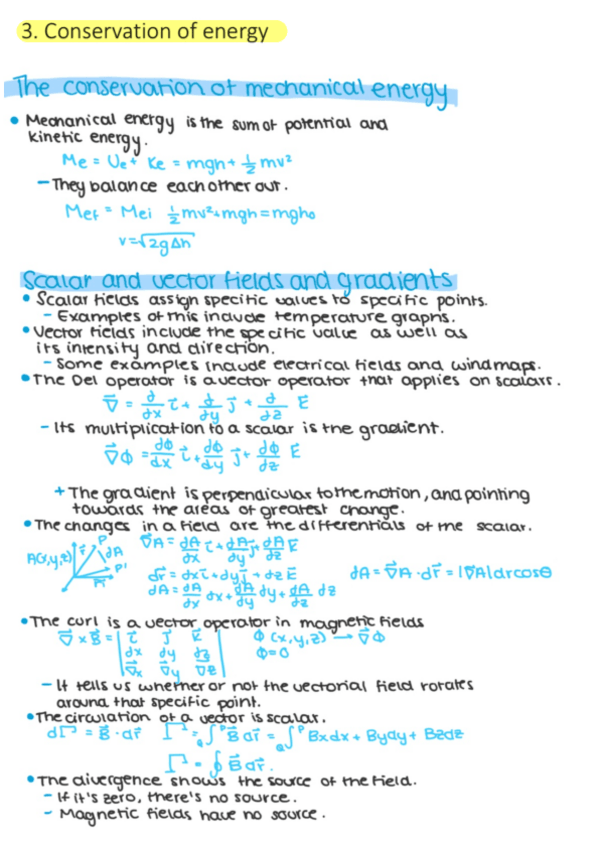 3. Conservation of energy
The conservation of mechanical energy
• Mechanical energy is the sum of potential and
kinetic energy.
Me = Ue + Ke = mgh + ½ mv²
– They balance each other out.
Mef = Mei ½mv²+mgh = mgh₀
v = √2gΔh
Scalar and vector fields and gradients
• Scalar fields assign specific values to specific points.
– Examples of this include temperature graphs.
• Vector fields include the specific value as well as
its intensity and direction.
– Some examples include electrical fields and windmaps.
• The Del operator is a vector operator that applies on scalars.
∇⃗ = d/dx i⃗ + d/dy j⃗ + d/dz k⃗
– Its multiplication to a scalar is the gradient.
∇⃗Φ = dΦ/dx i⃗ + dΦ/dy j⃗ + dΦ/dz k⃗
+ The gradient is perpendicular to the motion, and pointing
towards the areas of greatest change.
• The changes in a field are the differentials of the scalar.
∇⃗A = dA/dx i⃗ + dA/dy j⃗ + dA/dz k⃗
A(x,y,z) r⃗ P dA P'
dr⃗ = dx i⃗ + dy j⃗ + dz k⃗ dA = ∇⃗A · dr⃗ = |∇⃗A| dr cosθ
dA = dA/dx dx + dA/dy dy + dA/dz dz
• The curl is a vector operator in magnetic fields
∇⃗ × B⃗ = | i⃗ j⃗ k⃗ | Φ(x,y,z) → ∇⃗Φ
| dx dy dz | Φ=0
| ∇⃗x ∇⃗y ∇⃗z |
– It tells us whether or not the vectorial field rotates
around that specific point.
• The circulation of a vector is scalar.
dΓ = B⃗ · dr⃗ Γ = ∫ B⃗ dr⃗ = ∫ Bxdx + Bydy + Bzdz
Γ = ∮ B⃗ dr⃗.
• The divergence shows the source of the field.
– If it's zero, there's no source.
– Magnetic fields have no source.